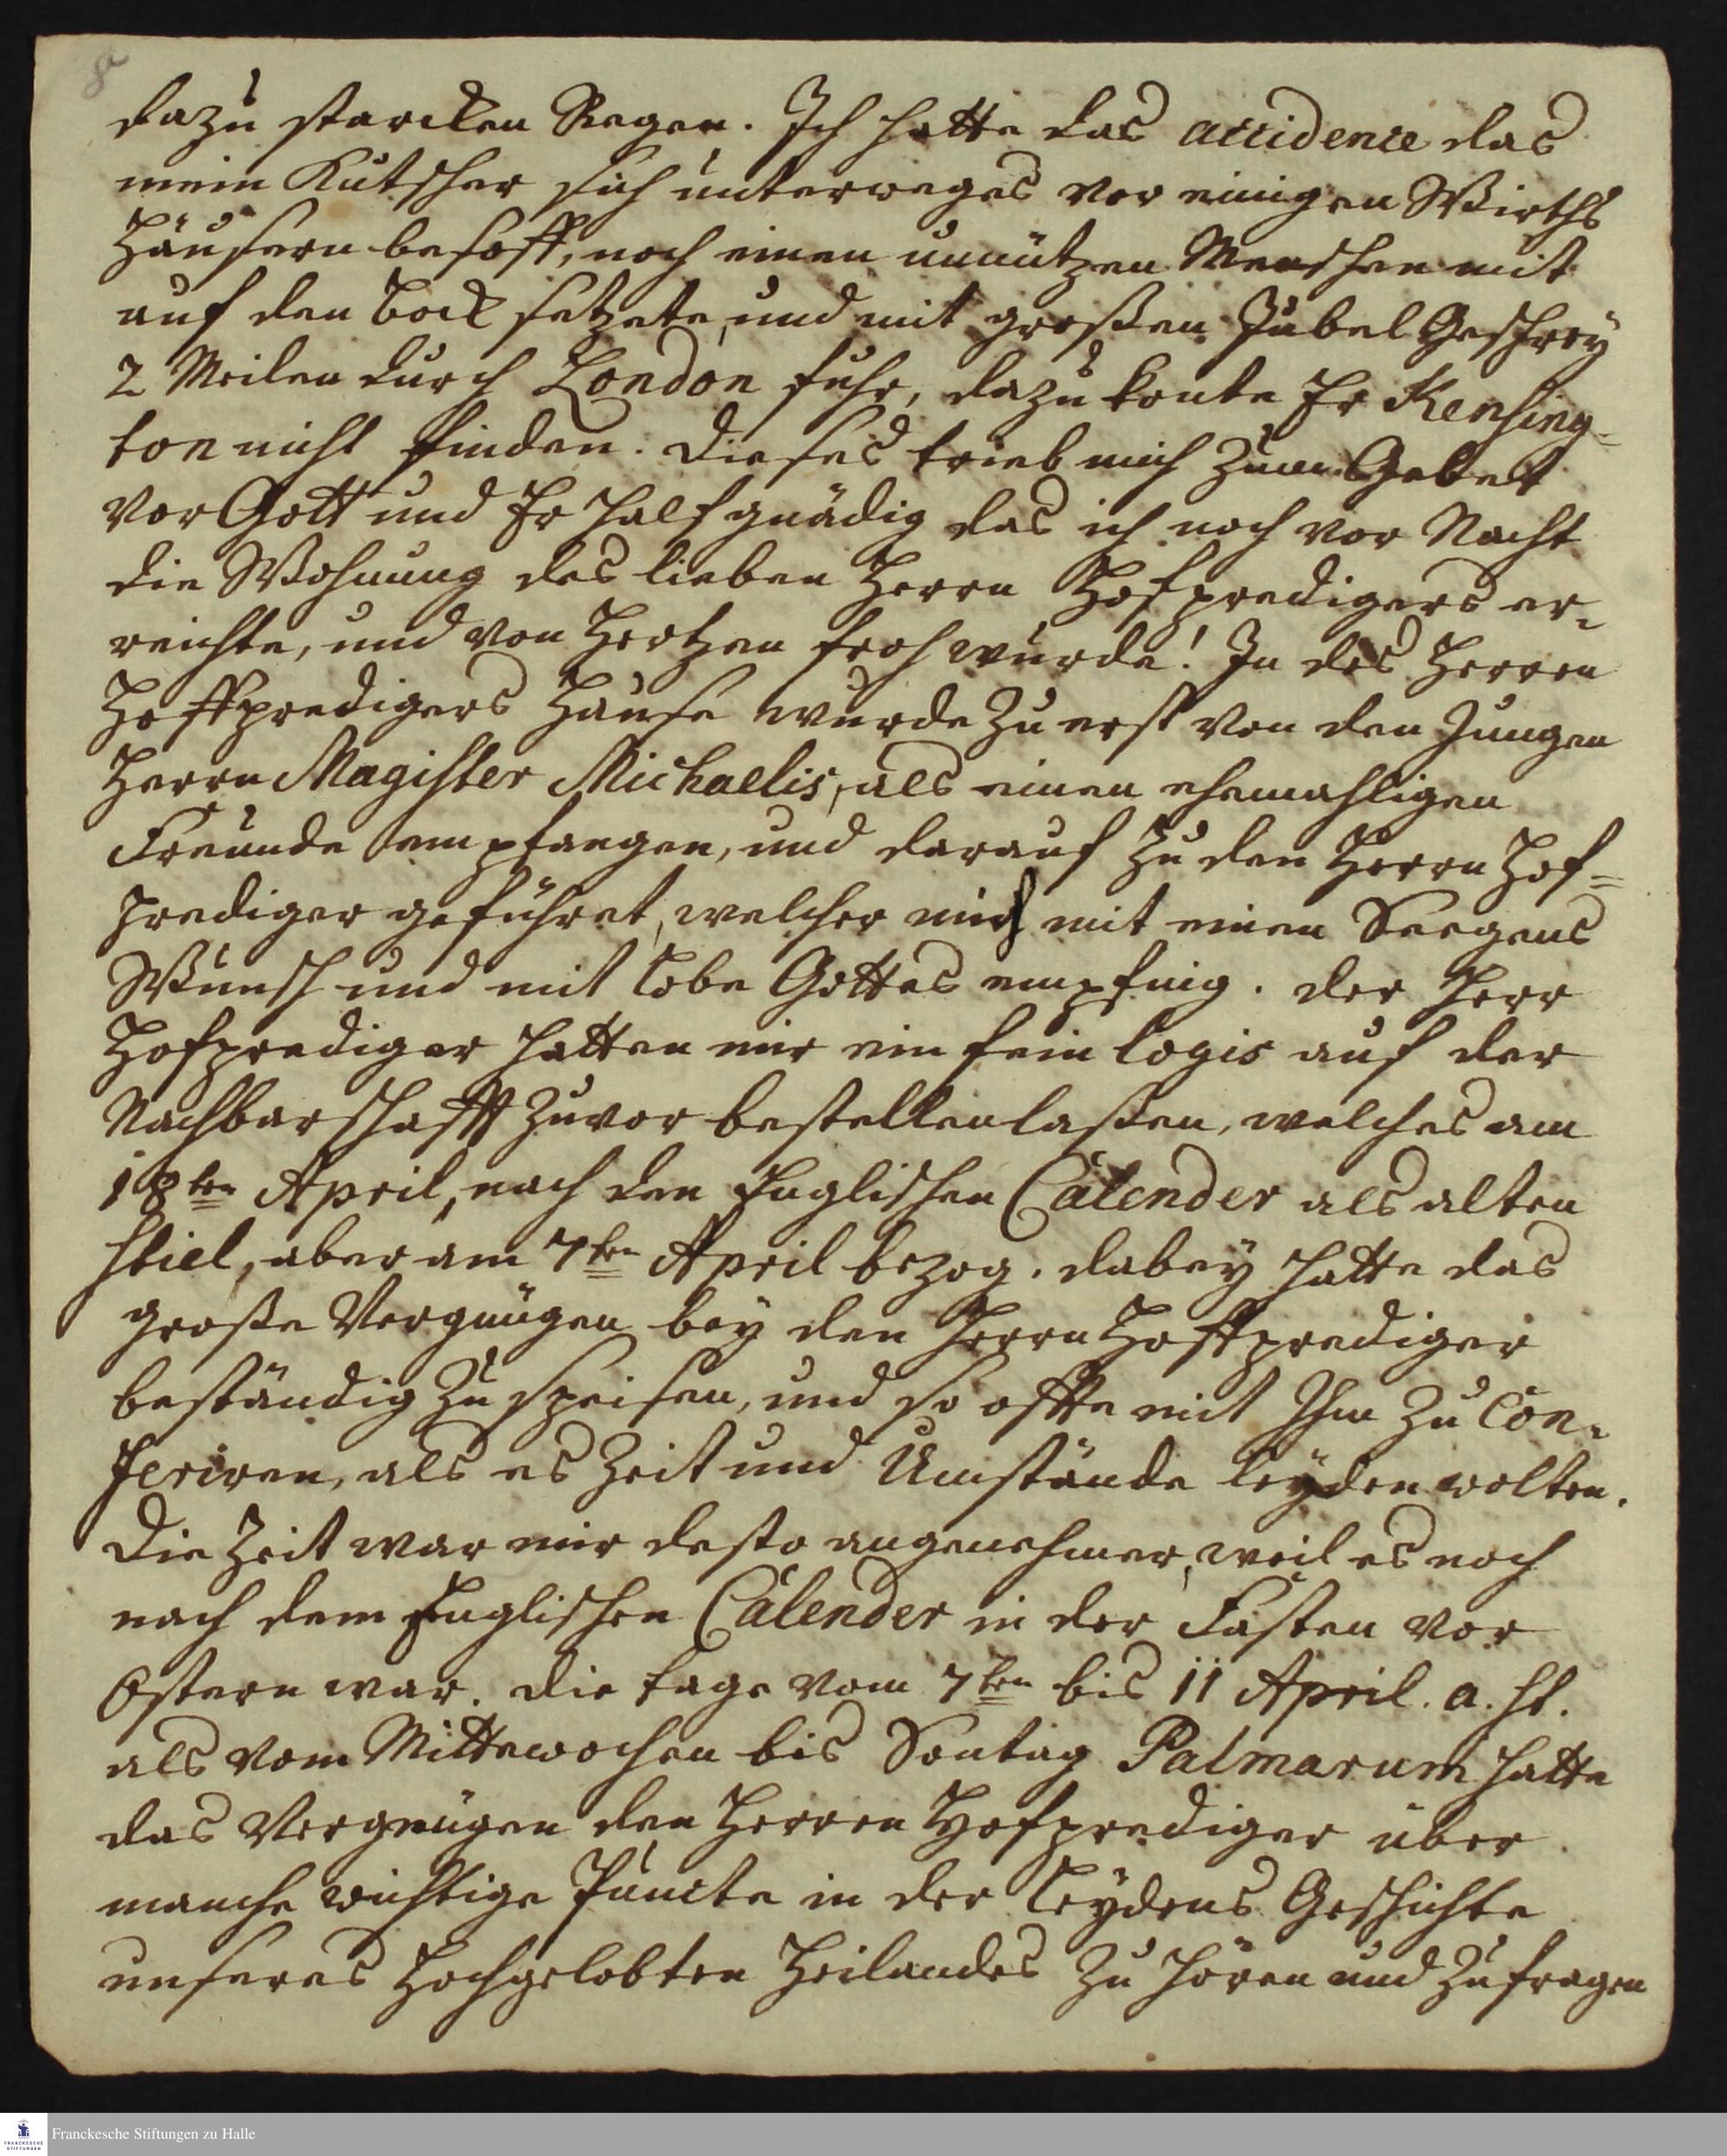 8a
dazu starcken Regen. Ich hatte das accidence das
mein Kutscher sich unterweges vor einigen Wirths
Häusern besoff, noch einen unnützen Menschen mit
auf den Bock setzete, und mit großen Jubel Geschrey
2 Meilen durch London fuhr, dazu konte Er Kensing-
ton nicht finden. Dieses trieb mich zum Gebet
vor Gott und Er half gnädig das ich noch vor Nacht
die Wohnung des lieben Herrn Hofpredigers er-
reichte, und von Hertzen froh wurde! In des Herren
Hoffpredigers Hause wurde zu erst von den Jungen
Herrn Magister Michaelis, als einen ehemahligen
Freunde empfangen, und darauf zu den Herrn Hof=
prediger geführet, welcher mich mit einen Seegens
Wunsch und mit Lobe Gottes empfing. Der Herr
Hofprediger hatten mir ein fein logis auf der
Nachbarschafft zuvor bestellen laßen, welches am
18ten April, nach den Englischen Calender als alten
stiel, aber am 7ten April bezog. dabey hatte das
große Vergnügen bey den Herrn Hoffprediger
beständig zu speisen, und so offte mit Ihm zu Con-
feriren, als es Zeit und Umstände leyden wolten.
Die Zeit war mir desto angenehmer, weil es noch
nach dem Englischen Calender in der Fasten vor
Ostern war. Die tage vom 7ten bis 11 April. a. st.
als vom Mittewochen bis Sontag Palmarum hatte
das Vergnügen den Herren Hofprediger über
manche wichtige Puncte in der Leydens Geschichte
unseres Hochgelobten Heilandes zu hören und zu fragen
FRANCKESCHE STIFTUNGEN
Franckesche Stiftungen zu Halle